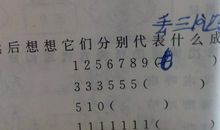 手三
然后想想它们分别代表什么成
1256789(
333555(　　)
510(　　)
1111111(